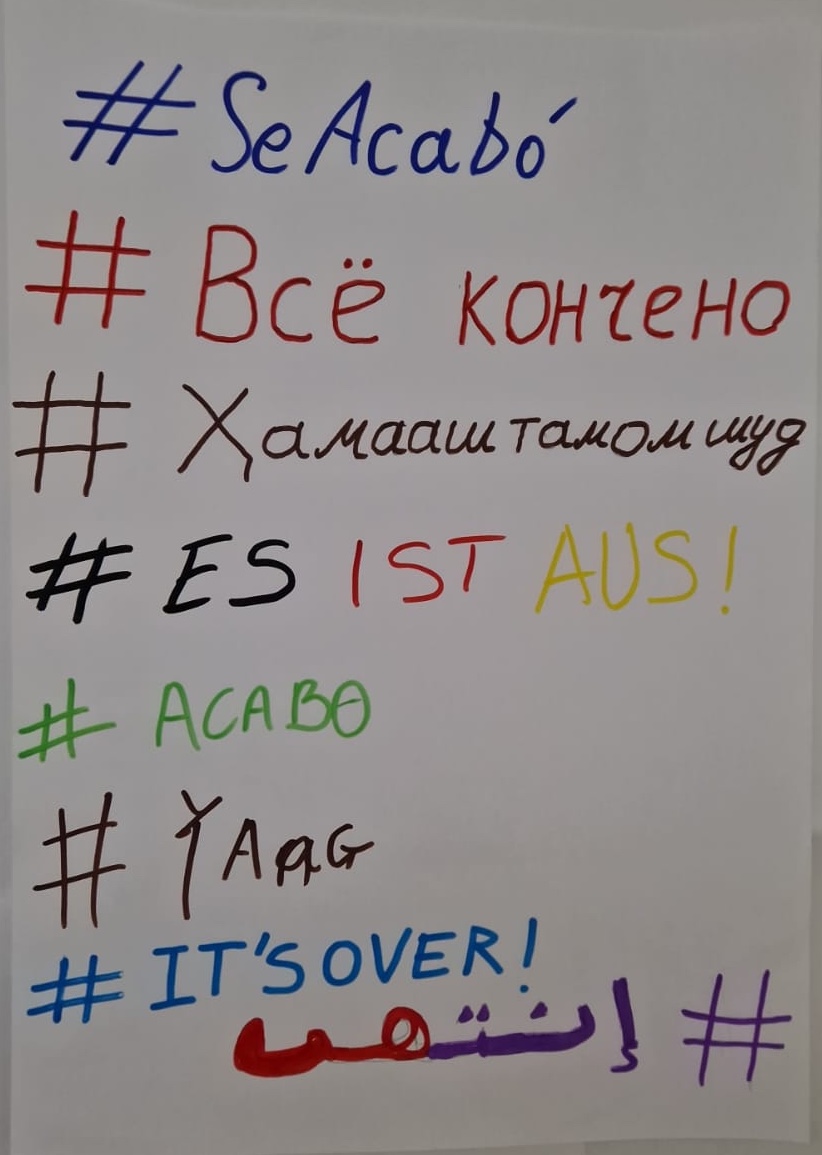 #SeAcabó
# Всё кончено
# Ҳамааш тамом шуд
# ES IST AUS!
# ACABO
#
# IT'S OVER!
# إنتهى